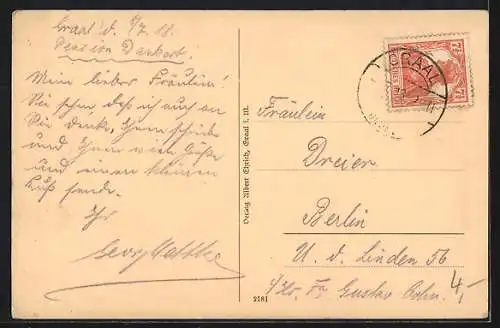 Graal d. 9/7. 18.
Pension Dankart.
Mein lieber Fräulein!
Sie sehen daß ich auch an
Sie denke, Ihnen schreibe
und Ihnen viele Grüße
und einen kleinen
Kuß sende.
Ihr
Georg
GRAAL
7½
Verlag Albert Ehrich, Graal i. M.
2181
Fräulein
Dreier
Berlin
U. d. Linden 56
Gustav Cohn.
4,-